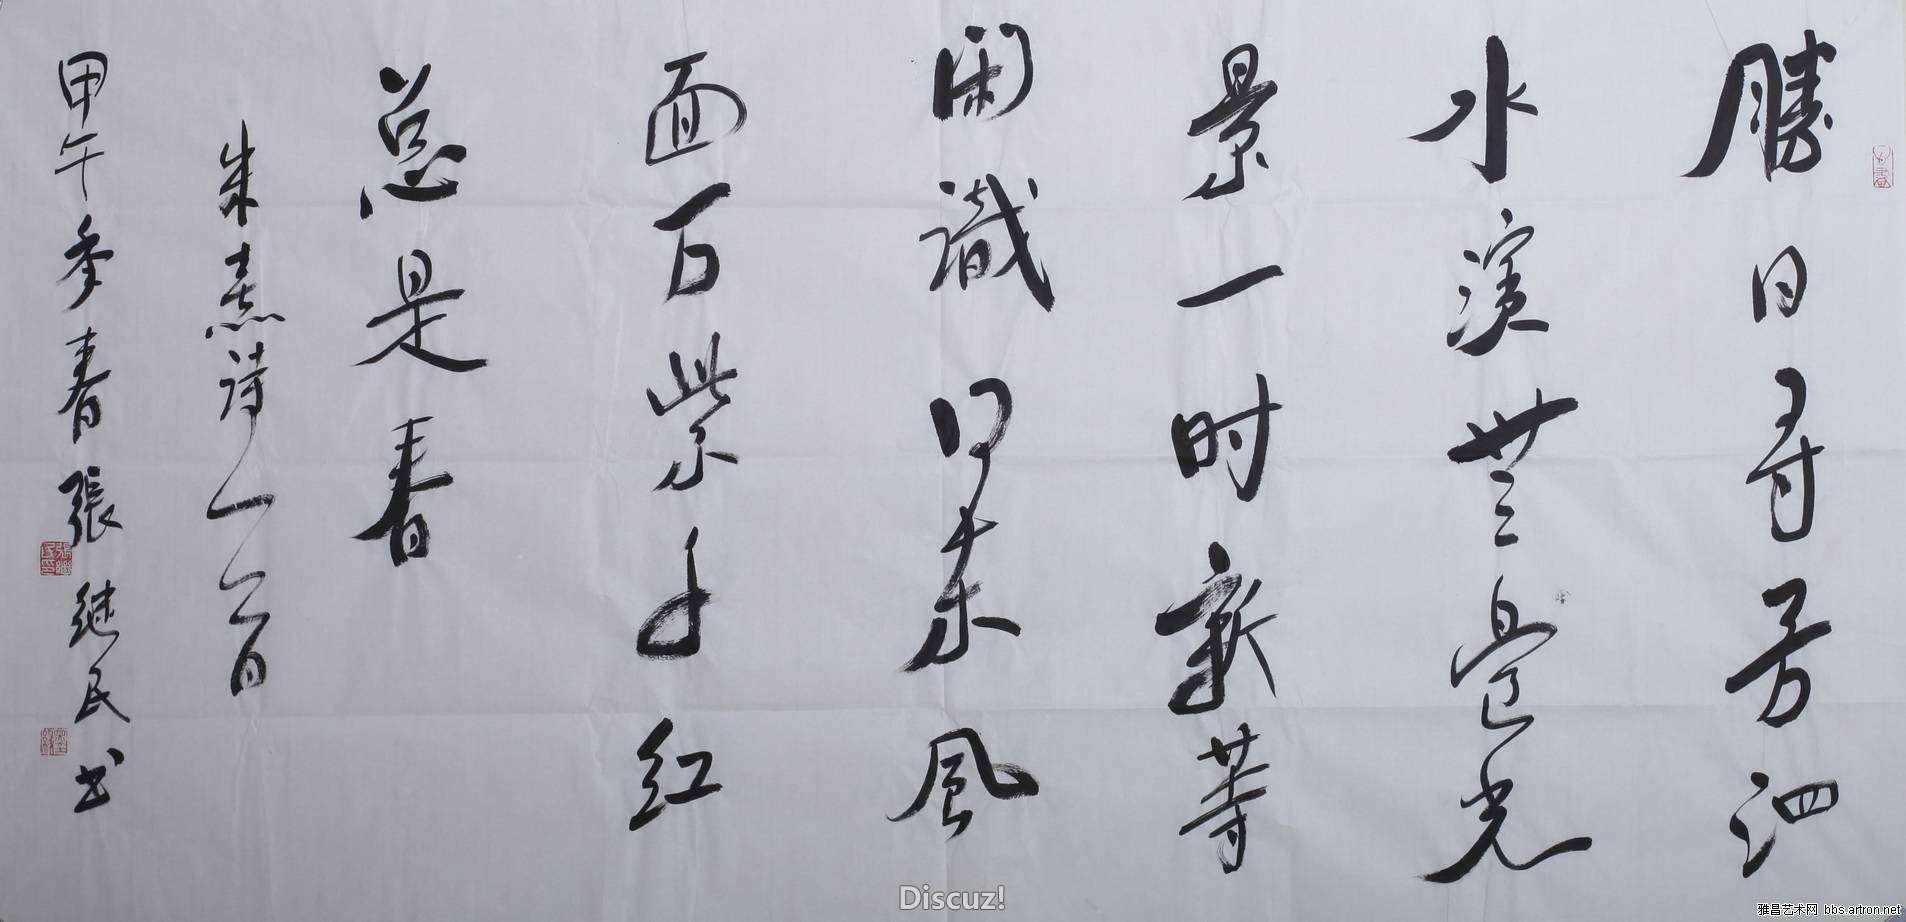 勝日寻芳泗
水濱無邊光
景一时新等
闲識得東風
面百紫千红
总是春
朱熹诗一首
甲午季春張继民书
Discuz!
雅昌艺术网 bbs.artron.net